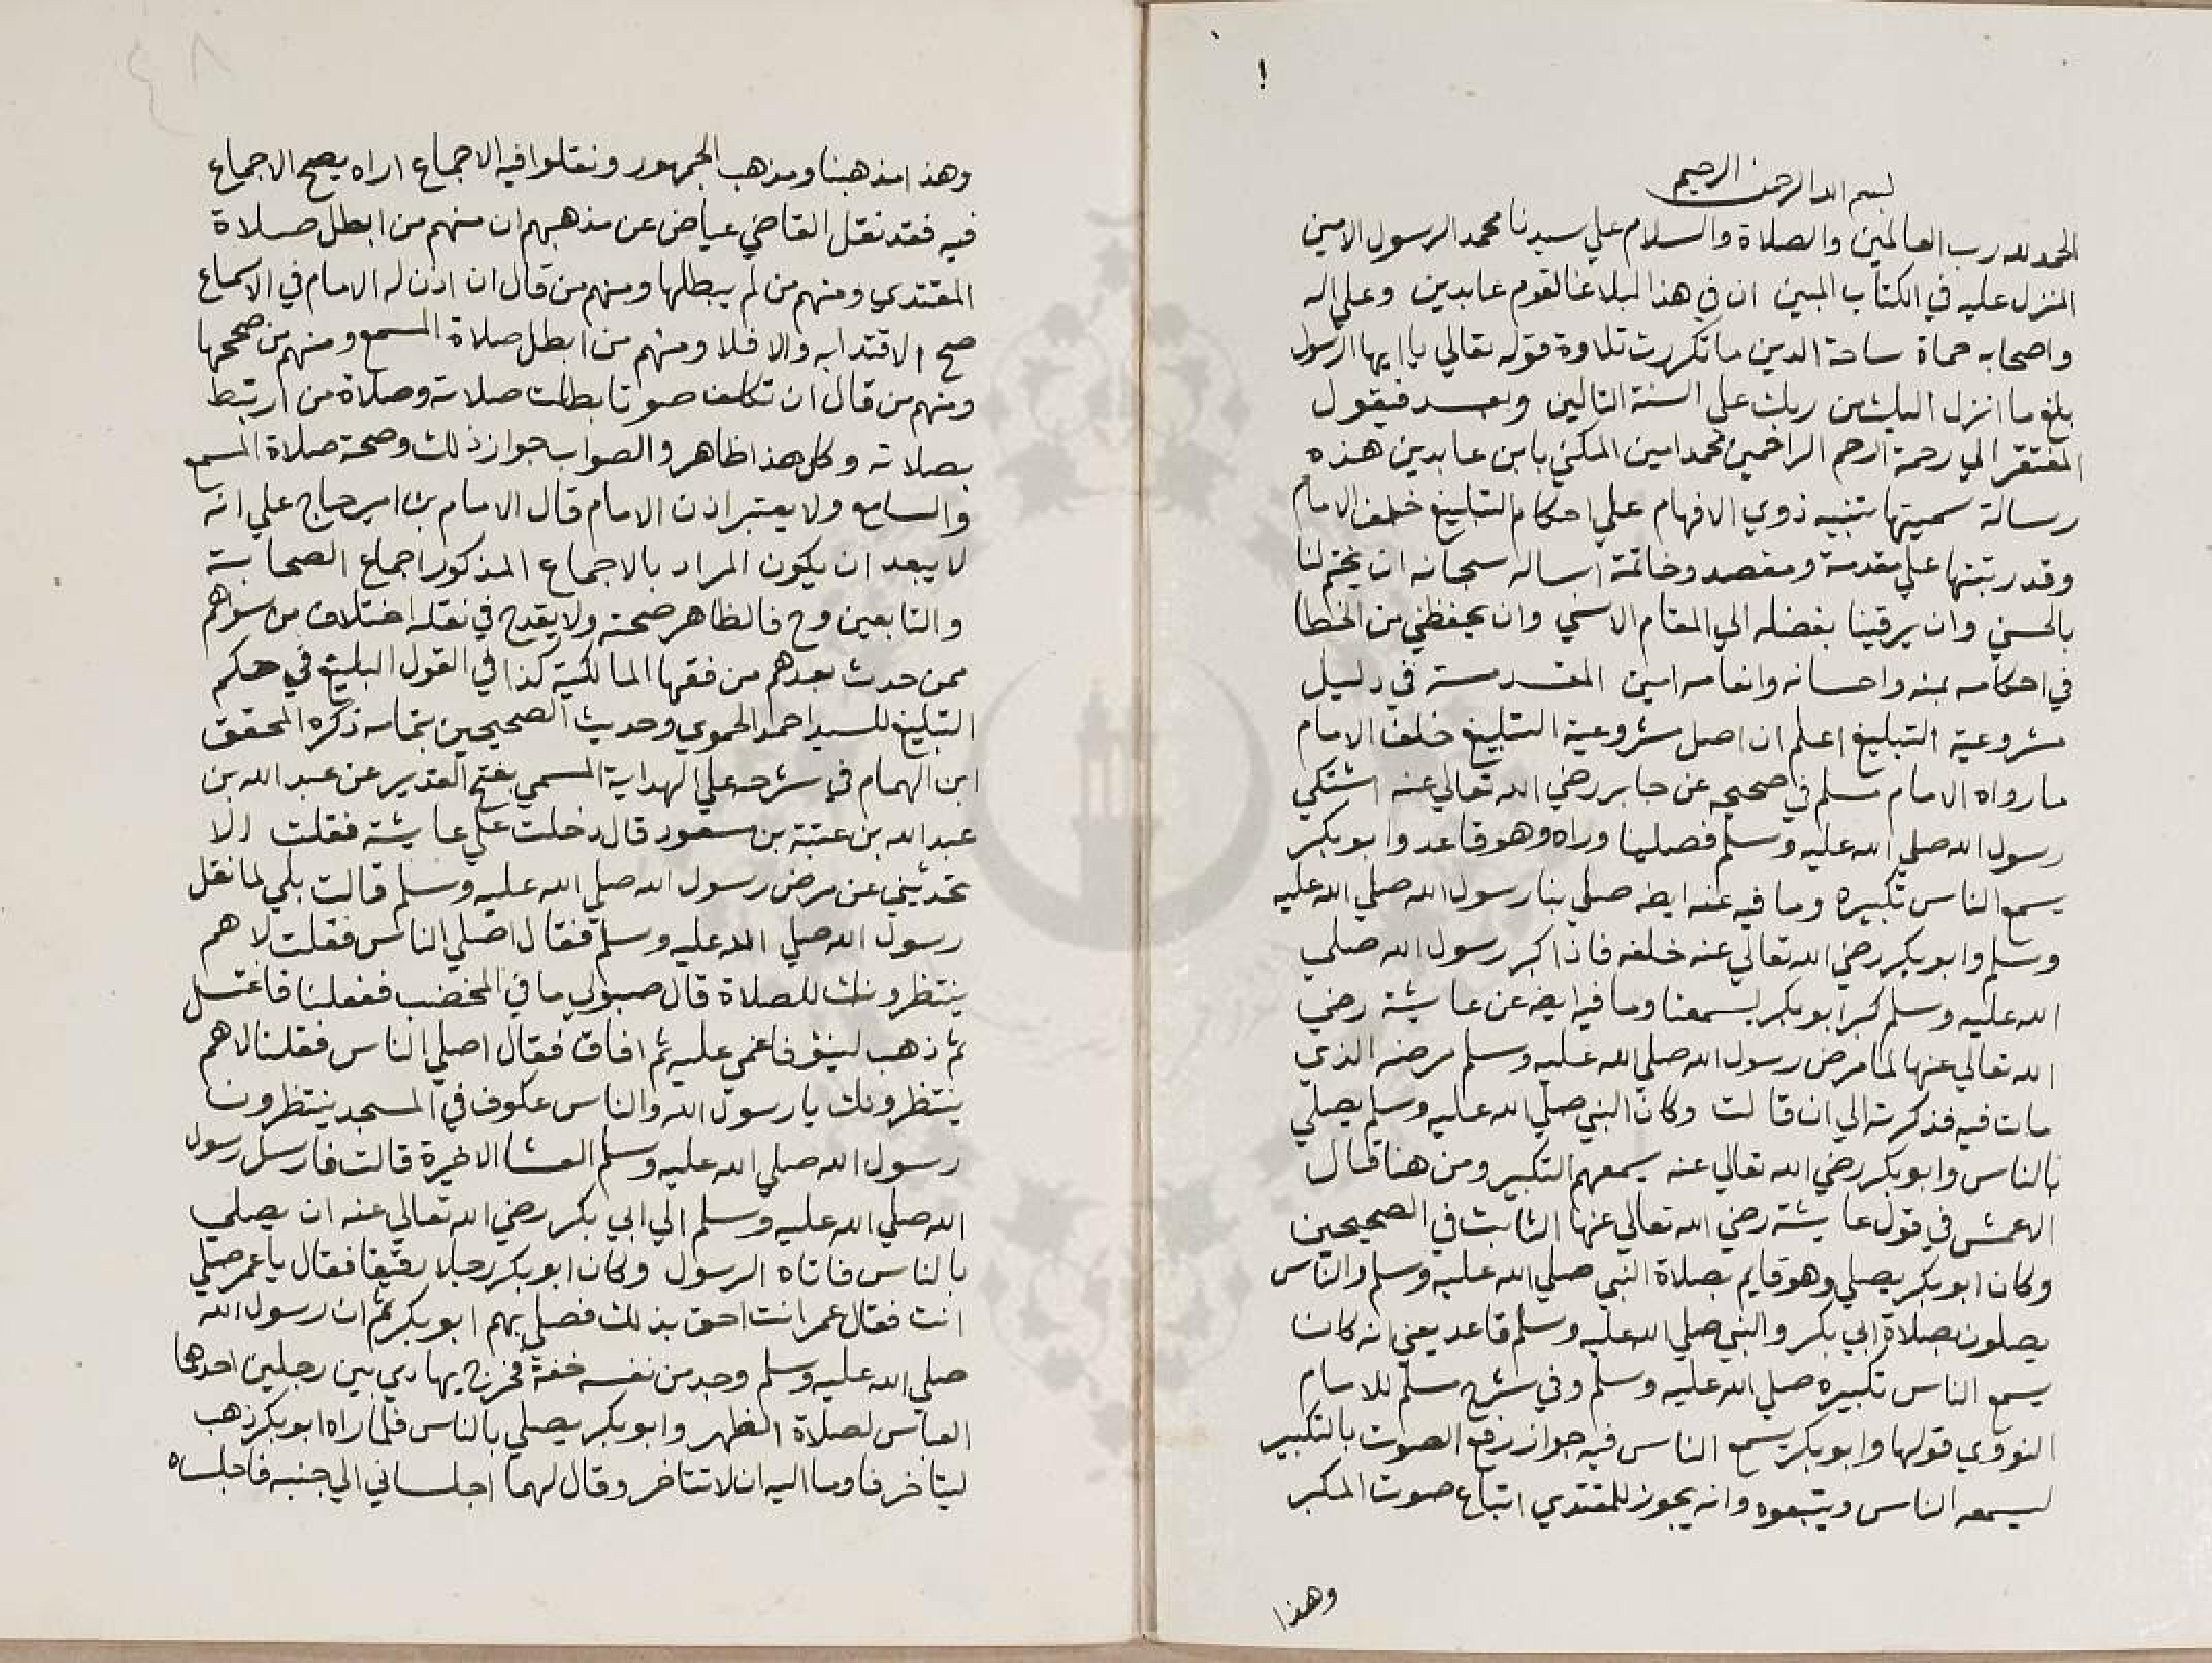 بسم الله الرحمن الرحيم
الحمد لله رب العالمين والصلاة والسلام علي سيدنا محمد الرسول الامين
المنزل عليه في الكتاب المبين ان في هذا لبلاغا لقوم عابدين وعلي اله
واصحابه حماة ساحة الدين ما تكررت تلاوة قوله تعالي يا ايها الرسول
بلغ ما انزل اليك من ربك علي السنة التالين وبعد فيقول
المفتقر الي رحمة ارحم الراحمين محمد امين المكني بابن عابدين هذه
رسالة سميتها تنبيه ذوي الافهام علي احكام التبليغ خلف الامام
وقد رتبتها علي مقدمة ومقصد وخاتمة اساله سبحانه ان يختم لنا
بالحسني وان يرقينا بفضله الي المقام الاسني وان يحفظني من الخطا
في احكامه بمنه واحسانه وانعامه امين المقدمة في دليل
مشروعية التبليغ اعلم ان اصل مشروعية التبليغ خلف الامام
ما رواه الامام مسلم في صحيحه عن جابر رضي الله تعالي عنه اشتكي
رسول الله صلي الله عليه وسلم فصلينا وراه وهو قاعد وابو بكر
يسمع الناس تكبيره وما فيه عنه ايضه صلي بنا رسول الله صلي الله عليه
وسلم وابو بكر رضي الله تعالي عنه خلفه فاذا كبر رسول الله صلي
الله عليه وسلم كبر ابو بكر ليسمعنا وما فيه ايضه عن عايشة رضي
الله تعالي عنها لما مرض رسول الله صلي الله عليه وسلم مرضه الذي
مات فيه فذكرته الي ان قالت وكان النبي صلي الله عليه وسلم يصلي
بالناس وابو بكر رضي الله تعالي عنه يسمعهم التكبير ومن هنا قال
الاعمش في قول عايشة رضي الله تعالي عنها الثابت في الصحيحين
وكان ابو بكر يصلي وهو قايم بصلاة النبي صلي الله عليه وسلم والناس
يصلون بصلاة ابي بكر والنبي صلي الله عليه وسلم قاعد يعني انه كان
يسمع الناس تكبيره صلي الله عليه وسلم وفي شرح مسلم للامام
النووي قولها وابو بكر يسمع الناس فيه جواز رفع الصوت بالتكبير
ليسمعه الناس ويتبعوه وانه يجوز للمقتدي اتباع صوت المكبر
وهذا
وهذا مذهبنا ومذهب الجمهور ونقلوا فيه الاجماع اراه يصح الاجماع
فيه فقد نقل القاضي عياض عن مذهبهم ان منهم من ابطل صلاة
المقتدي ومنهم من لم يبطلها ومنهم من قال ان اذن له الامام في الاسماع
صح الاقتدا به والا فلا ومنهم من ابطل صلاة المسمع ومنهم من صححها
ومنهم من قال ان تكلف صوتا بطلت صلاته وصلاة من ارتبط
بصلاته وكل هذا ظاهر والصواب جواز ذلك وصحة صلاة المسمع
والسامع ولا يعتبر اذن الامام قال الامام بن امير حاج علي انه
لا يبعد ان يكون المراد بالاجماع المذكور اجماع الصحابة
والتابعين وح فالظاهر صحته ولا يقدح في نقله اختلاف من سواهم
ممن حدث بعدهم من فقها المالكية كذا في القول البليغ في حكم
التبليغ للسيد احمد الحموي وحديث الصحيحين بتمامه ذكره المحقق
ابن الهمام في شرحه علي الهداية المسمي بفتح القدير عن عبد الله بن
عبد الله بن عتبة بن مسعود قال دخلت علي عايشة فقلت الا
تحدثيني عن مرض رسول الله صلي الله عليه وسلم قالت بلي لما نقل
رسول الله صلي الله عليه وسلم فقال اصلي الناس فقلت لا هم
ينتظرونك للصلاة قال صبولي ما في المخضب ففعلنا فاغتسل
ثم ذهب لينو فاغمي عليه ثم افاق فقال اصلي الناس فقلنا لا هم
ينتظرونك يا رسول الله والناس عكوف في المسجد ينتظرون
رسول الله صلي الله عليه وسلم العشا الاخيرة قالت فارسل رسول
الله صلي الله عليه وسلم الي ابي بكر رضي الله تعالي عنه ان يصلي
بالناس فاتاه الرسول وكان ابو بكر رجلا رقيقا فقال يا عمر صلي
انت فقال عمر انت احق بذلك فصلي بهم ابو بكر ثم ان رسول الله
صلي الله عليه وسلم وجد من نفسه خفة فخرج يهادي بين رجلين احدهما
العباس لصلاة الظهر وابو بكر يصلي بالناس فلما راه ابو بكر ذهب
ليتاخر فاوما اليه ان لا تتاخر وقال لهما اجلساني الي جنبه فاجلساه